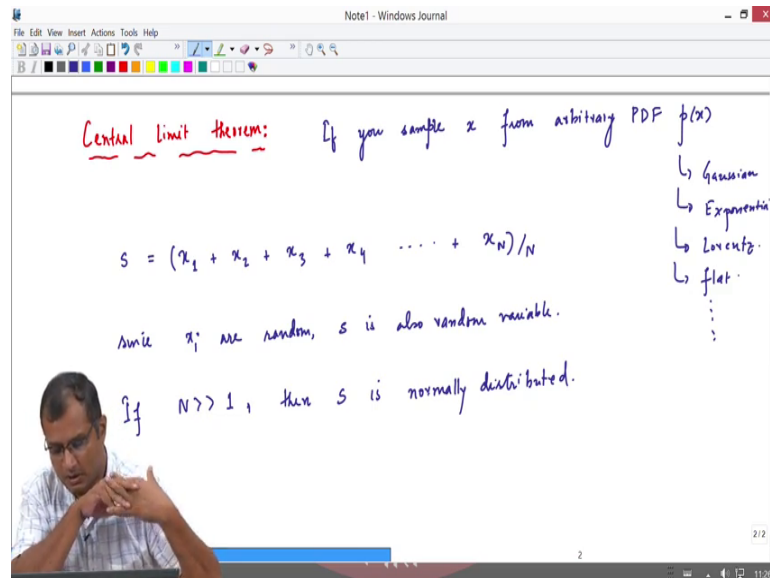 Note1 - Windows Journal
File Edit View Insert Actions Tools Help
B I
Central limit theorem: If you sample x from arbitrary PDF p(x)
↳ Gaussian
↳ Exponentia
↳ Lorentz.
↳ flat.
S = (x₁ + x₂ + x₃ + x₄ ..... + x_N)/N
since xᵢ are random, S is also random variable.
If N>>1, then S is normally distributed.
2/2
2
11:26